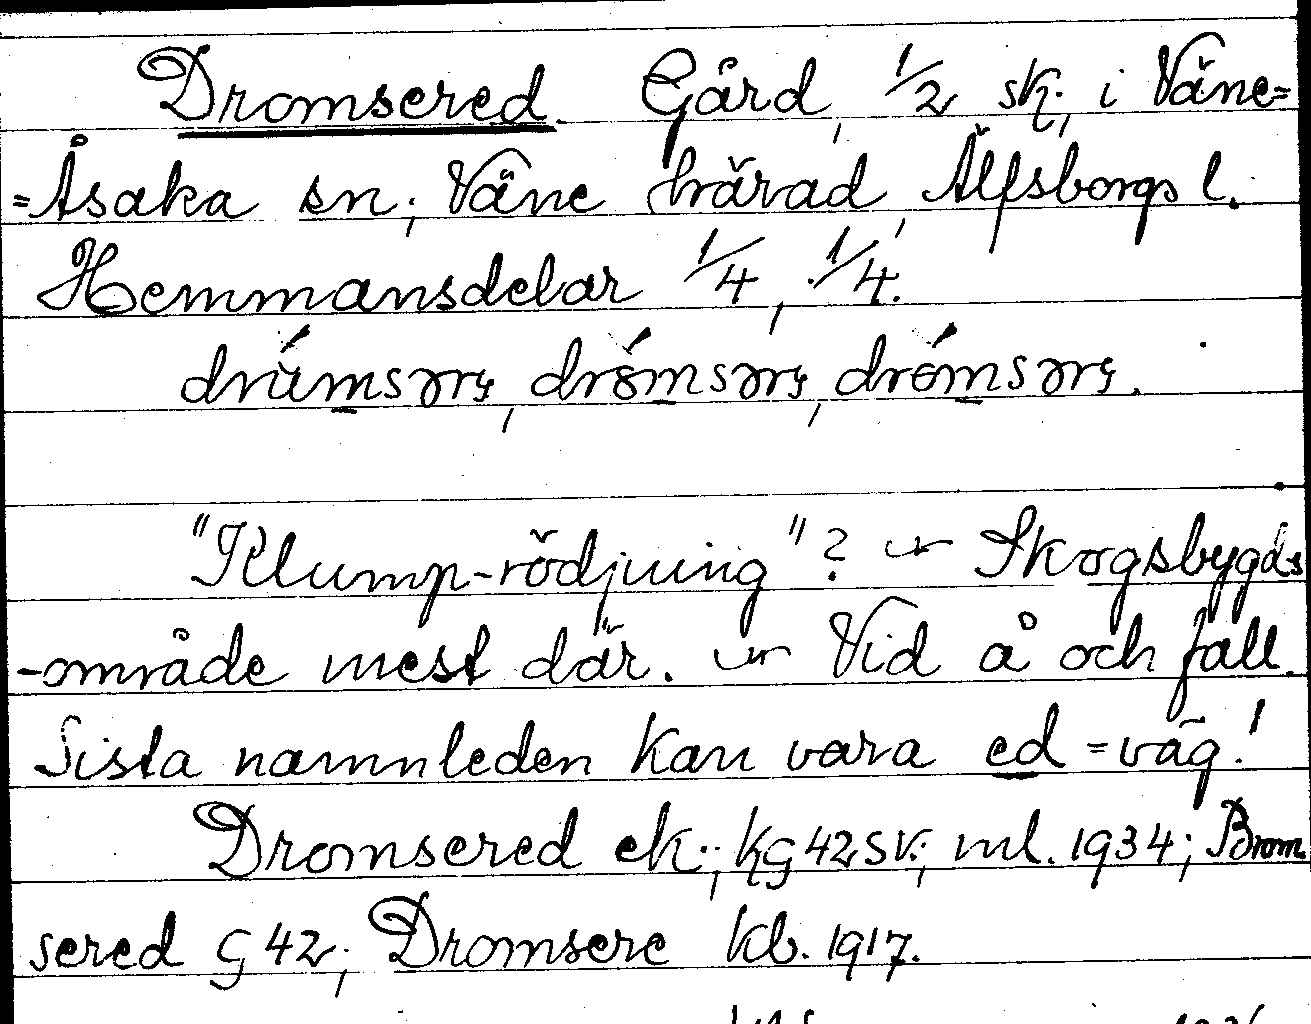 Dromsered. Gård, 1/2 sk., i Väne=
=Åsaka sn; Väne härad, Älfsborgs l.
Hemmansdelar 1/4, 1/4.
"Klump-rödjning"? ~ Skogsbygds
-område mest där. ~ Vid å och fall.
Sista namnleden kan vara ed = väg!
Dromsered ek.; kg 42 SV.; ml. 1934; Brom
sered G 42; Dromsere kb. 1917.